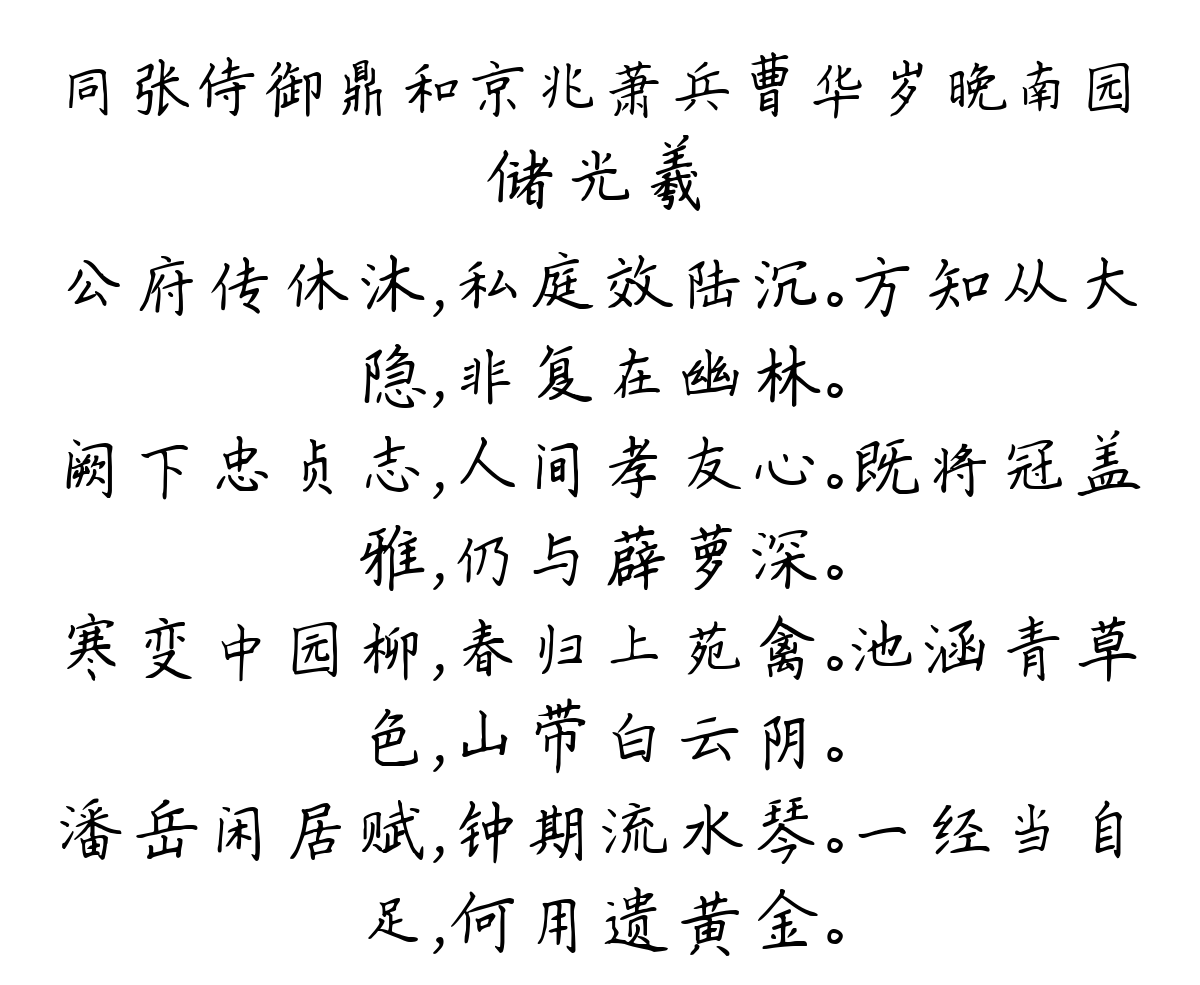 同张侍御鼎和京兆萧兵曹华岁晚南园
储光羲
公府传休沐,私庭效陆沉。方知从大
隐,非复在幽林。
阙下忠贞志,人间孝友心。既将冠盖
雅,仍与薜萝深。
寒变中园柳,春归上苑禽。池涵青草
色,山带白云阴。
潘岳闲居赋,钟期流水琴。一经当自
足,何用遗黄金。